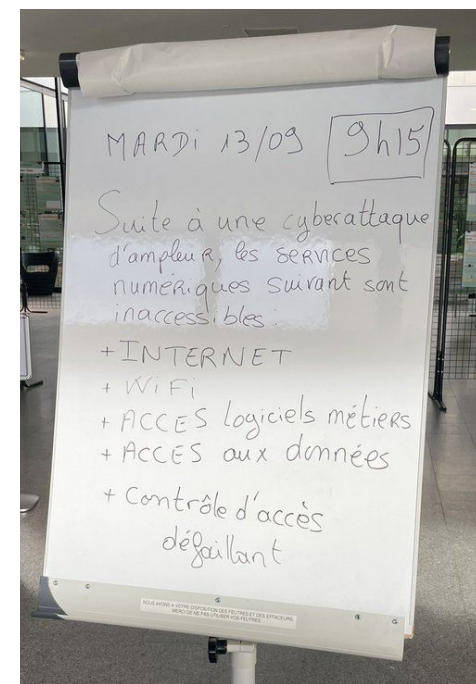 MARDi 13/09 9h15
Suite à une cyberattaque
d'ampleur, les services
numériques suivant sont
inaccessibles :
+ INTERNET
+ WiFi
+ ACCES logiciels métiers
+ ACCES aux données
+ Contrôle d'accès
défaillant
NOUS AVONS A VOTRE DISPOSITION DES FEUTRES ET DES EFFACEURS,
MERCI DE NE PAS UTILISER VOS FEUTRES